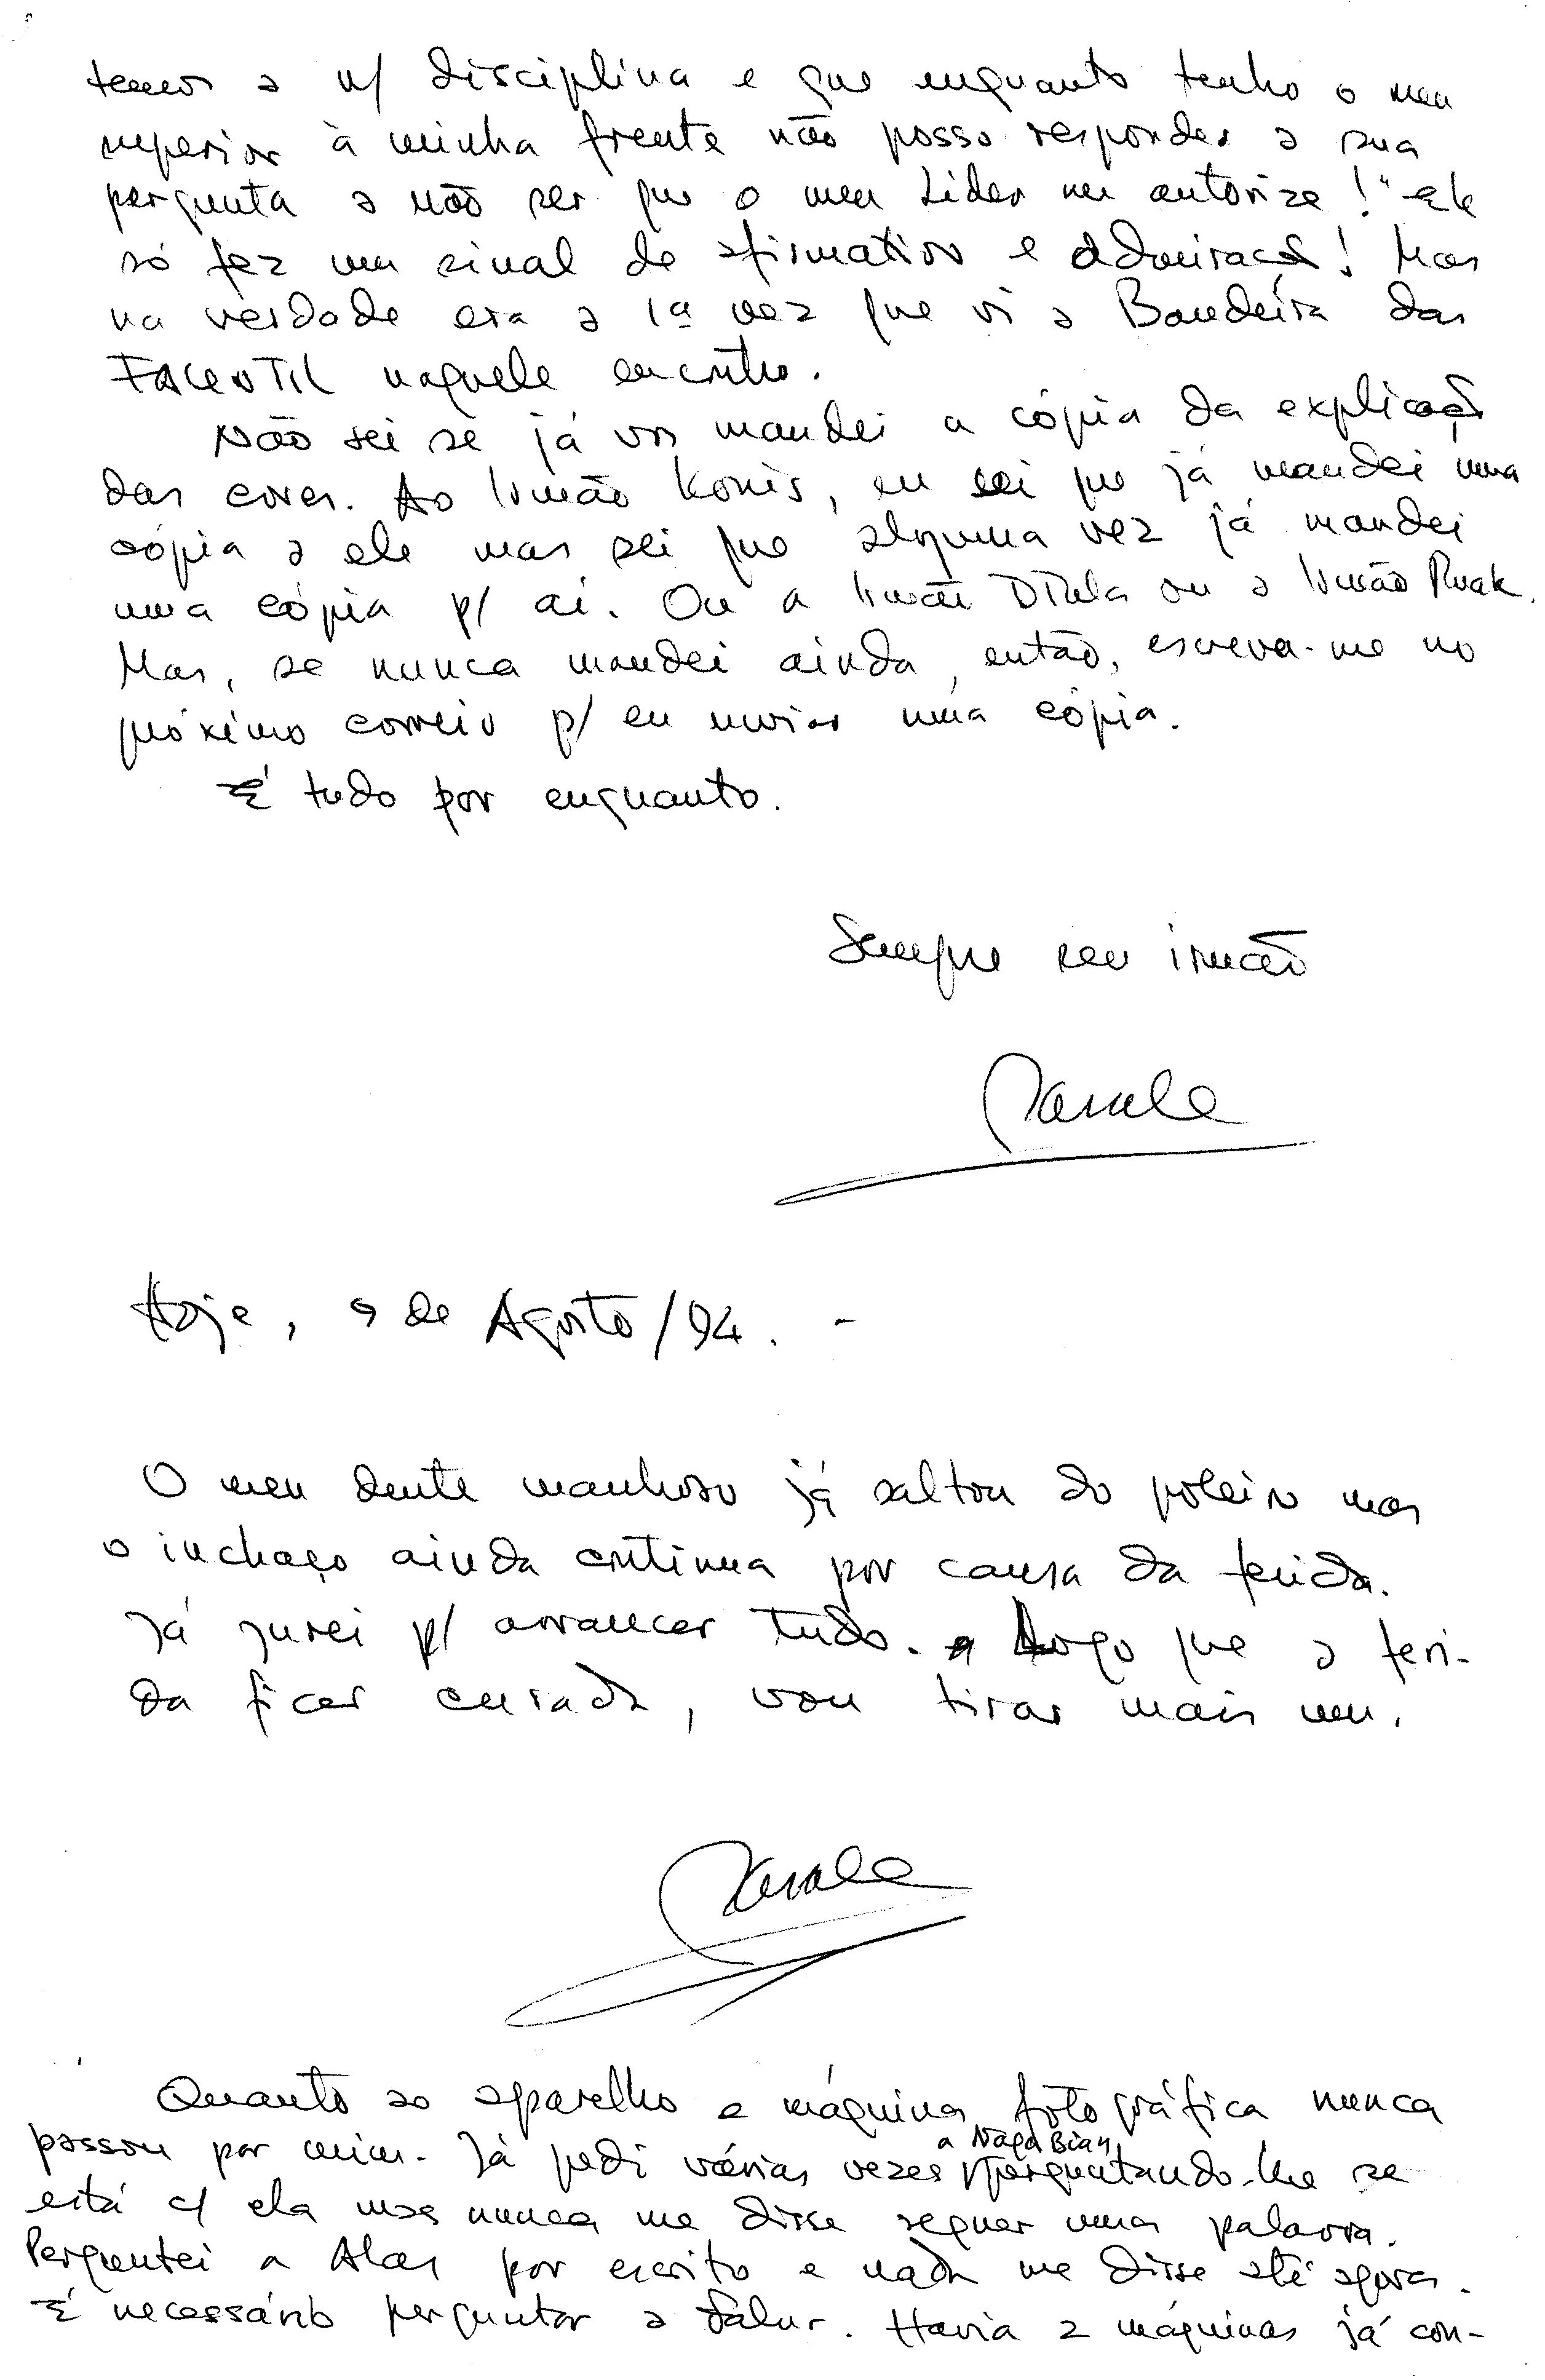 temos a n/ disciplina e que enquanto tenho o meu
superior à minha frente não posso responder a sua
pergunta a não ser que o meu Líder me autorize!" Ele
só fez um sinal de afirmativo e admiração! Mas
na verdade era a 1ª vez que vi a Bandeira das
FALINTIL naquele encontro.
Não sei se já vos mandei a cópia da explicação
das cores. Ao Irmão Konis, eu sei que já mandei uma
cópia a ele mas sei que alguma vez já mandei
uma cópia p/ aí. Ou a Irmã Dtula ou a Irmão Ruak.
Mas, se nunca mandei ainda, então, escreva-me no
próximo correio p/ eu enviar uma cópia.
É tudo por enquanto.
Sempre seu irmão
Hoje, 9 de Agosto/94. -
O meu dente manhoso já saltou do poleiro mas
o inchaço ainda continua por causa da ferida.
Já jurei p/ arrancar tudo. Logo que a feri-
da ficar curada, vou tirar mais um.
Quanto ao aparelho e máquina fotográfica nunca
passou por mim. Já pedi várias vezes a Naga Bian, perguntando-lhe se
está c/ ela mas nunca me disse sequer uma palavra.
Perguntei a Alas por escrito e nada me disse até agora.
É necessário perguntar a Falur. Havia 2 máquinas já con-